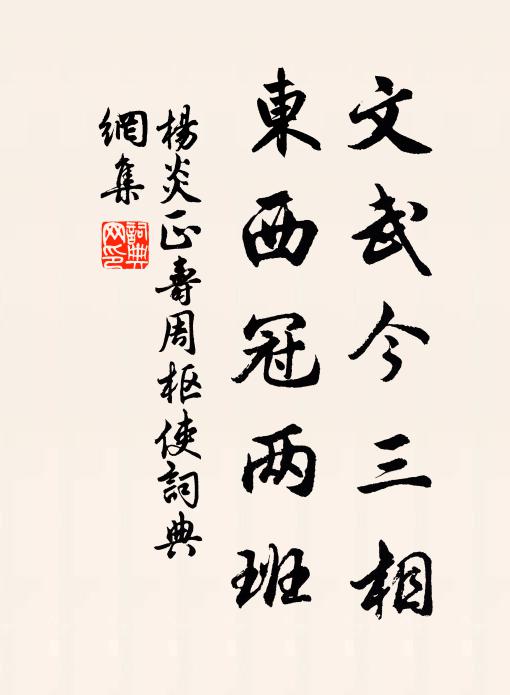 文武今三相
東西冠两班
楊炎正壽周枢使詞典
網集
詞典网印